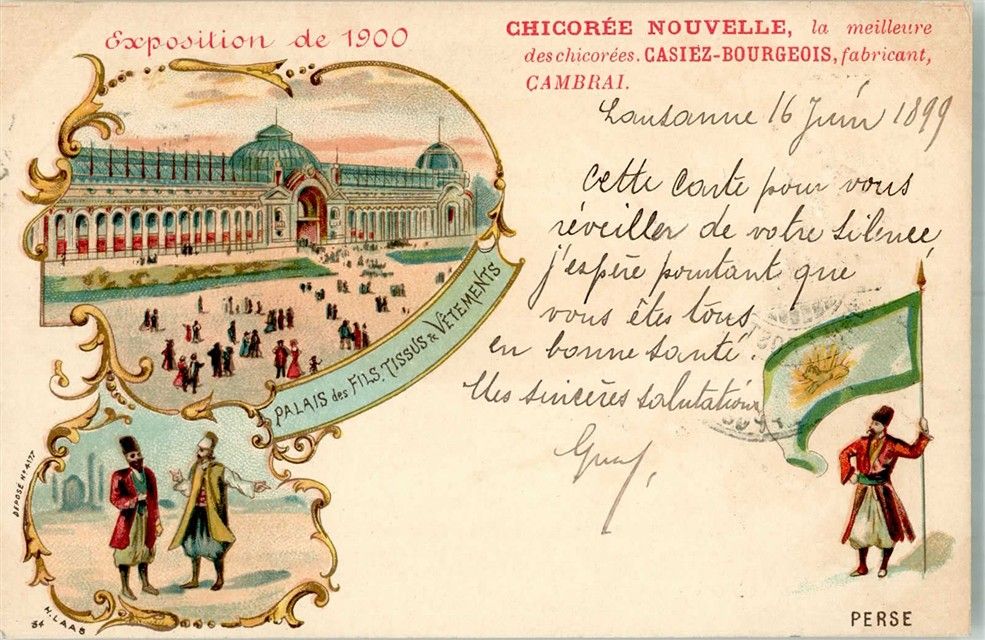 Exposition de 1900
CHICORÉE NOUVELLE, la meilleure
des chicorées. CASIEZ-BOURGEOIS, fabricant,
CAMBRAI.
Lausanne 16 Juin 1899
Cette carte pour vous
réveiller de votre silence,
j'espère pourtant que
vous êtes tous
en bonne santé.
Mes sincères salutations
PALAIS des FILS, TISSUS & VÊTEMENTS
DEPOSÉ No 4177
H. LAAS
34
PERSE